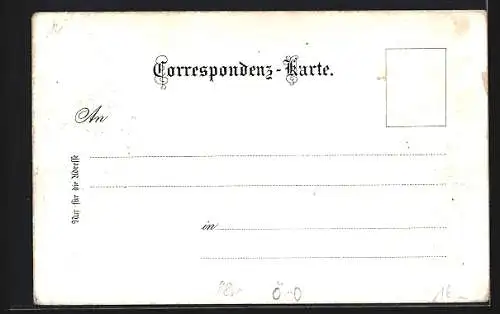 Correspondenz-Karte.
An
Nur für die Adresse
in
Ö-O
16